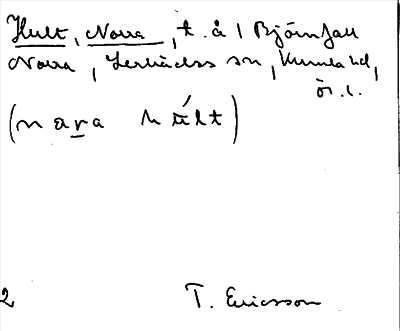 Hult, Norra, t. å 1 Björnfall
Norra, Lerbäcks sn, Kumla hd,
ör. l.
(nara hult)
2 T. Ericsson